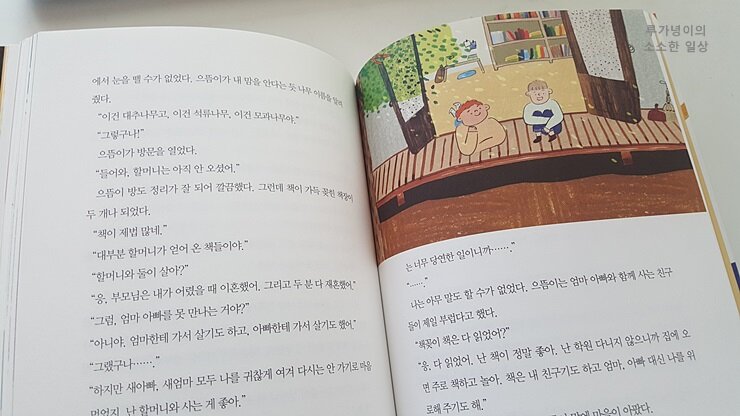 루가녕이의
소소한 일상
에서 눈을 뗄 수가 없었다. 으뜸이가 내 맘을 안다는 듯 나무 이름을 알려
줬다.
“이건 대추나무고, 이건 석류나무, 이건 모과나무야.”
“그렇구나!”
으뜸이가 방문을 열었다.
“들어와, 할머니는 아직 안 오셨어.”
으뜸이 방도 정리가 잘 되어 깔끔했다. 그런데 책이 가득 꽂힌 책장이
두 개나 되었다.
“책이 제법 많네.”
“대부분 할머니가 얻어 온 책들이야.”
“할머니와 둘이 살아?”
“응, 부모님은 내가 어렸을 때 이혼했어. 그리고 두 분 다 재혼했어.”
“그럼, 엄마 아빠를 못 만나는 거야?”
“아니야. 엄마한테 가서 살기도 하고, 아빠한테 가서 살기도 했어.”
“그랬구나…….”
“하지만 새아빠, 새엄마 모두 나를 귀찮게 여겨 다시는 안 가기로 마음
먹었지. 난 할머니와 사는 게 좋아.”
는 너무 당연한 일이니까…….”
“…….”
나는 아무 말도 할 수가 없었다. 으뜸이는 엄마 아빠와 함께 사는 친구
들이 제일 부럽다고 했다.
“책꽂이 책은 다 읽었어?”
“응. 다 읽었어. 난 책이 정말 좋아. 난 학원 다니지 않으니까 집에 오
면 주로 책하고 놀아. 책은 내 친구기도 하고 엄마, 아빠 대신 나를 위
로해 주기도 해.”
말에 마음이 아팠다.